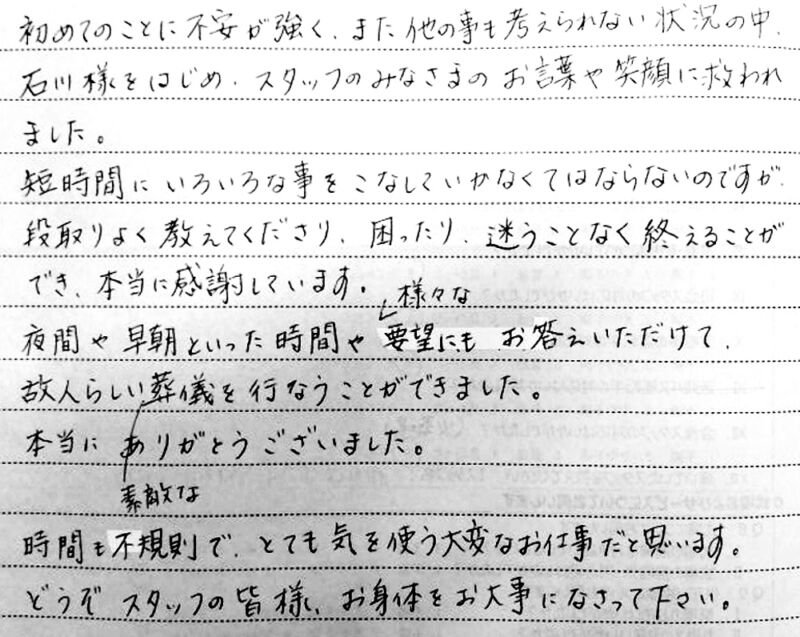 初めてのことに不安が強く、また他の事も考えられない状況の中、
石川様をはじめ、スタッフのみなさまのお言葉や笑顔に救われ
ました。
短時間にいろいろな事をこなしていかなくてはならないのですが、
段取りよく教えてくださり、困ったり、迷うことなく終えることが
でき、本当に感謝しています。
様々な
夜間や早朝といった時間や要望にもお答えいただけて、
故人らしい葬儀を行なうことができました。
本当にありがとうございました。
素敵な
時間も不規則で、とても気を使う大変なお仕事だと思います。
どうぞスタッフの皆様、お身体をお大事になさって下さい。